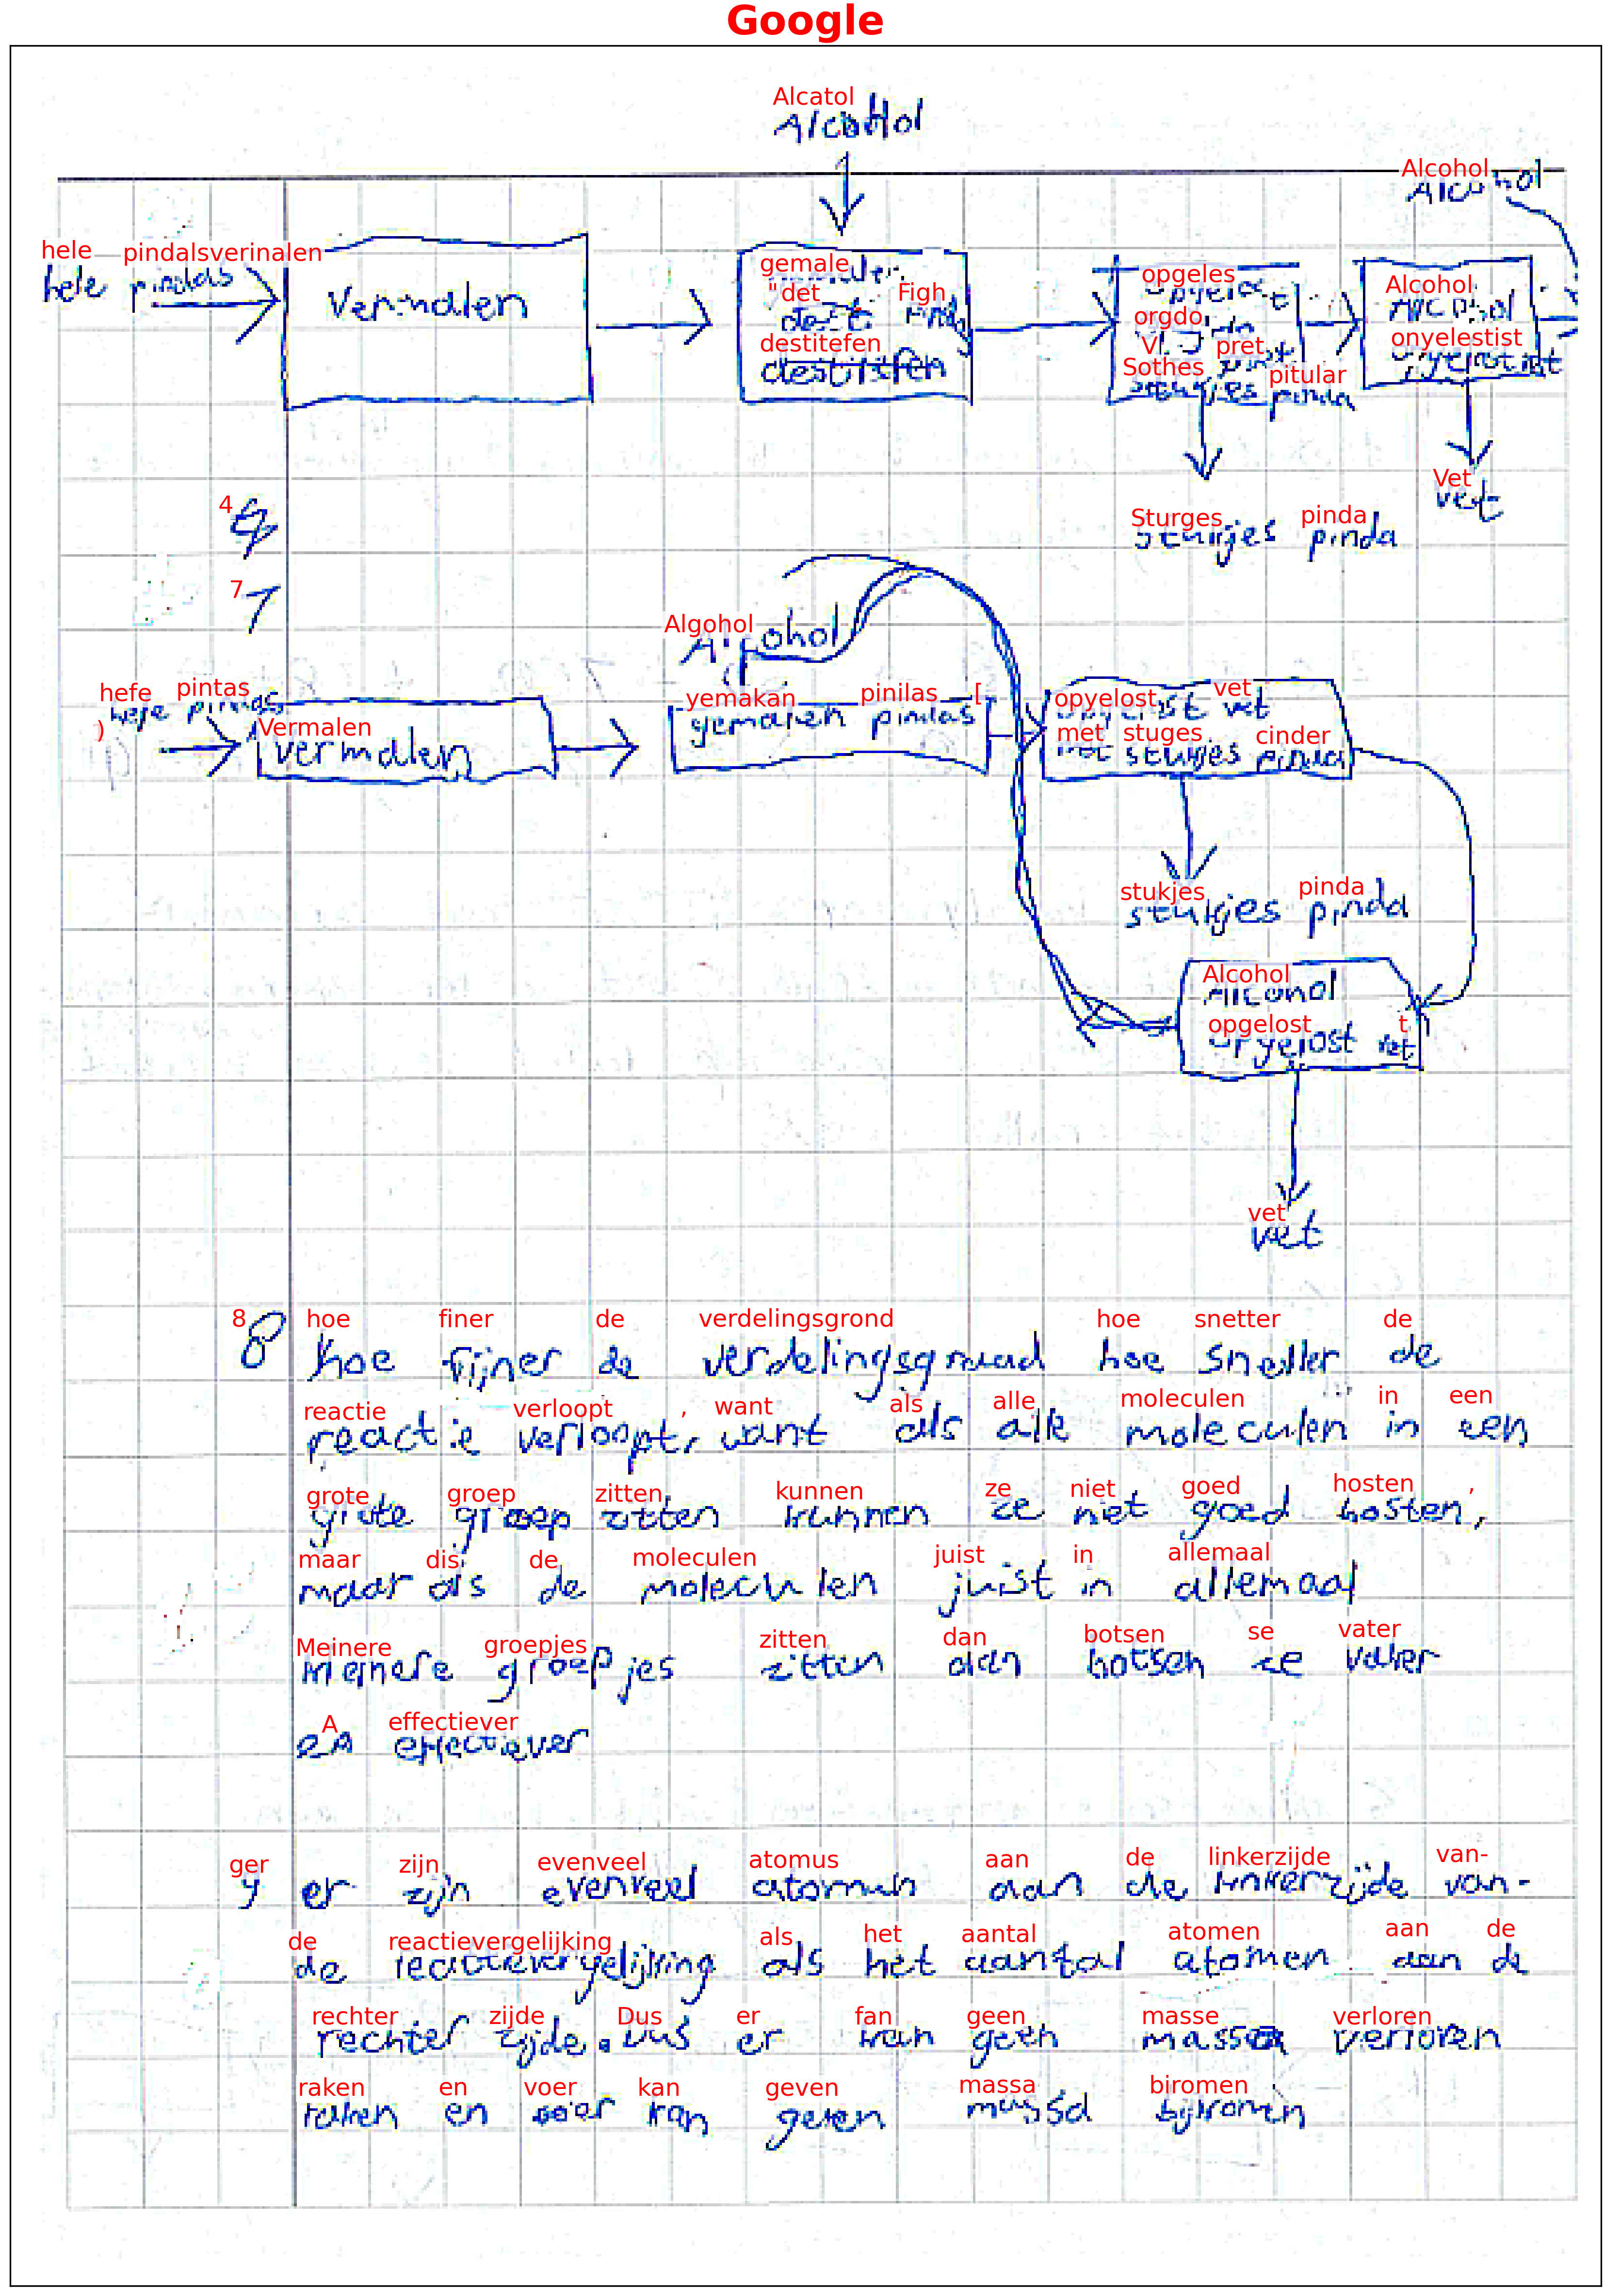 Google
Alcatol
Alcohol
Alcohol
Alcohol
hele pindalsverinalen
hele pindas
vermalen
gemale
"det Figh
destitefen
opgeles
orgdo
V pret
Sothes pitular
stukjes pinda
Alcohol
Alcohol
onyelestist
opgelost vet
Vet
vet
Sturges pinda
stukjes pinda
4
7
7
Algohol
Alcohol
hefe pintas
)
hele pindas
Vermalen
vermalen
yemakan pinilas [
gemalen pindas
opyelost vet
opgelost vet
met stuges cinder
met stukjes pinda
stukjes pinda
stukjes pinda
Alcohol
Alcohol
opgelost t
opgelost vet
vet
vet
8 hoe finer de verdelingsgrond hoe snetter de
8 hoe fijner de verdelingsgraad hoe sneller de
reactie verloopt , want als alle moleculen in een
reactie verloopt, want als alle moleculen in een
grote groep zitten kunnen ze niet goed hosten ,
grote groep zitten kunnen ze niet goed botsen,
maar dis de moleculen juist in allemaal
maar als de moleculen juist in allemaal
Meinere groepjes zitten dan botsen se vater
kleinere groepjes zitten dan botsen ze vaker
A effectiever
en effectiever
ger zijn evenveel atomus aan de linkerzijde van-
9 er zijn evenveel atomen aan de linkerzijde van-
de reactievergelijking als het aantal atomen aan de
de reactievergelijking als het aantal atomen aan de
rechter zijde Dus er fan geen masse verloren
rechter zijde. Dus er kan geen massa verloren
raken en voer kan geven massa biromen
raken en kan geen massa bijkomen